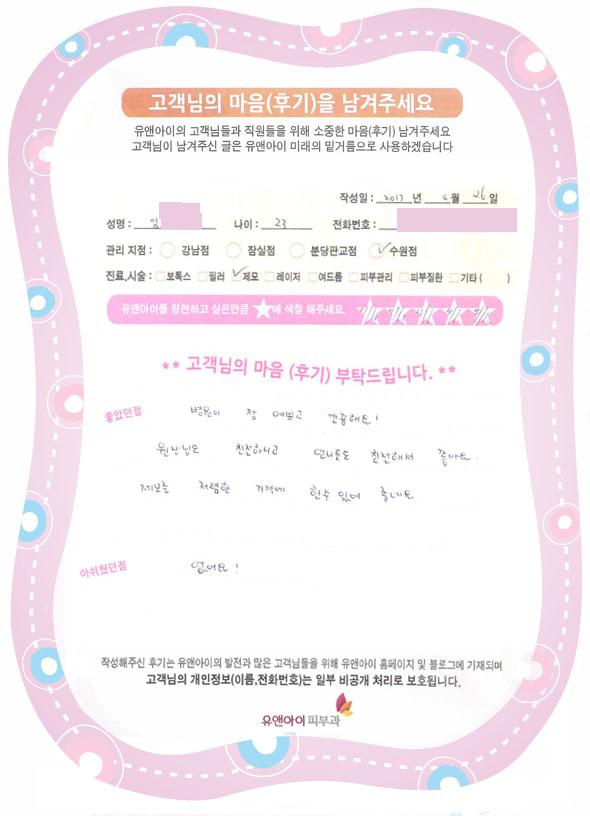 고객님의 마음(후기)을 남겨주세요
유앤아이의 고객님들과 직원들을 위해 소중한 마음(후기) 남겨주세요
고객님이 남겨주신 글은 유앤아이 미래의 밑거름으로 사용하겠습니다
작성일 : 2017 년 4 월 26 일
성명 : 임 나이 : 23 전화번호 :
관리 지점 : 강남점 잠실점 분당판교점 수원점
진료,시술 : 보톡스 필러 제모 레이저 여드름 피부관리 피부질환 기타 ( )
유앤아이를 칭찬하고 싶은만큼 ★에 색칠 해주세요.
** 고객님의 마음 (후기) 부탁드립니다. **
좋았던점 병원이 참 예쁘고 깔끔해요!
원장님도 친절하시고 언니들도 친절해서 좋아요.
제모를 저렴한 가격에 할수 있어 좋네요.
아쉬웠던점 없어요!
작성해주신 후기는 유앤아이의 발전과 많은 고객님들을 위해 유앤아이 홈페이지 및 블로그에 기재되며
고객님의 개인정보(이름,전화번호)는 일부 비공개 처리로 보호됩니다.
유앤아이 피부과